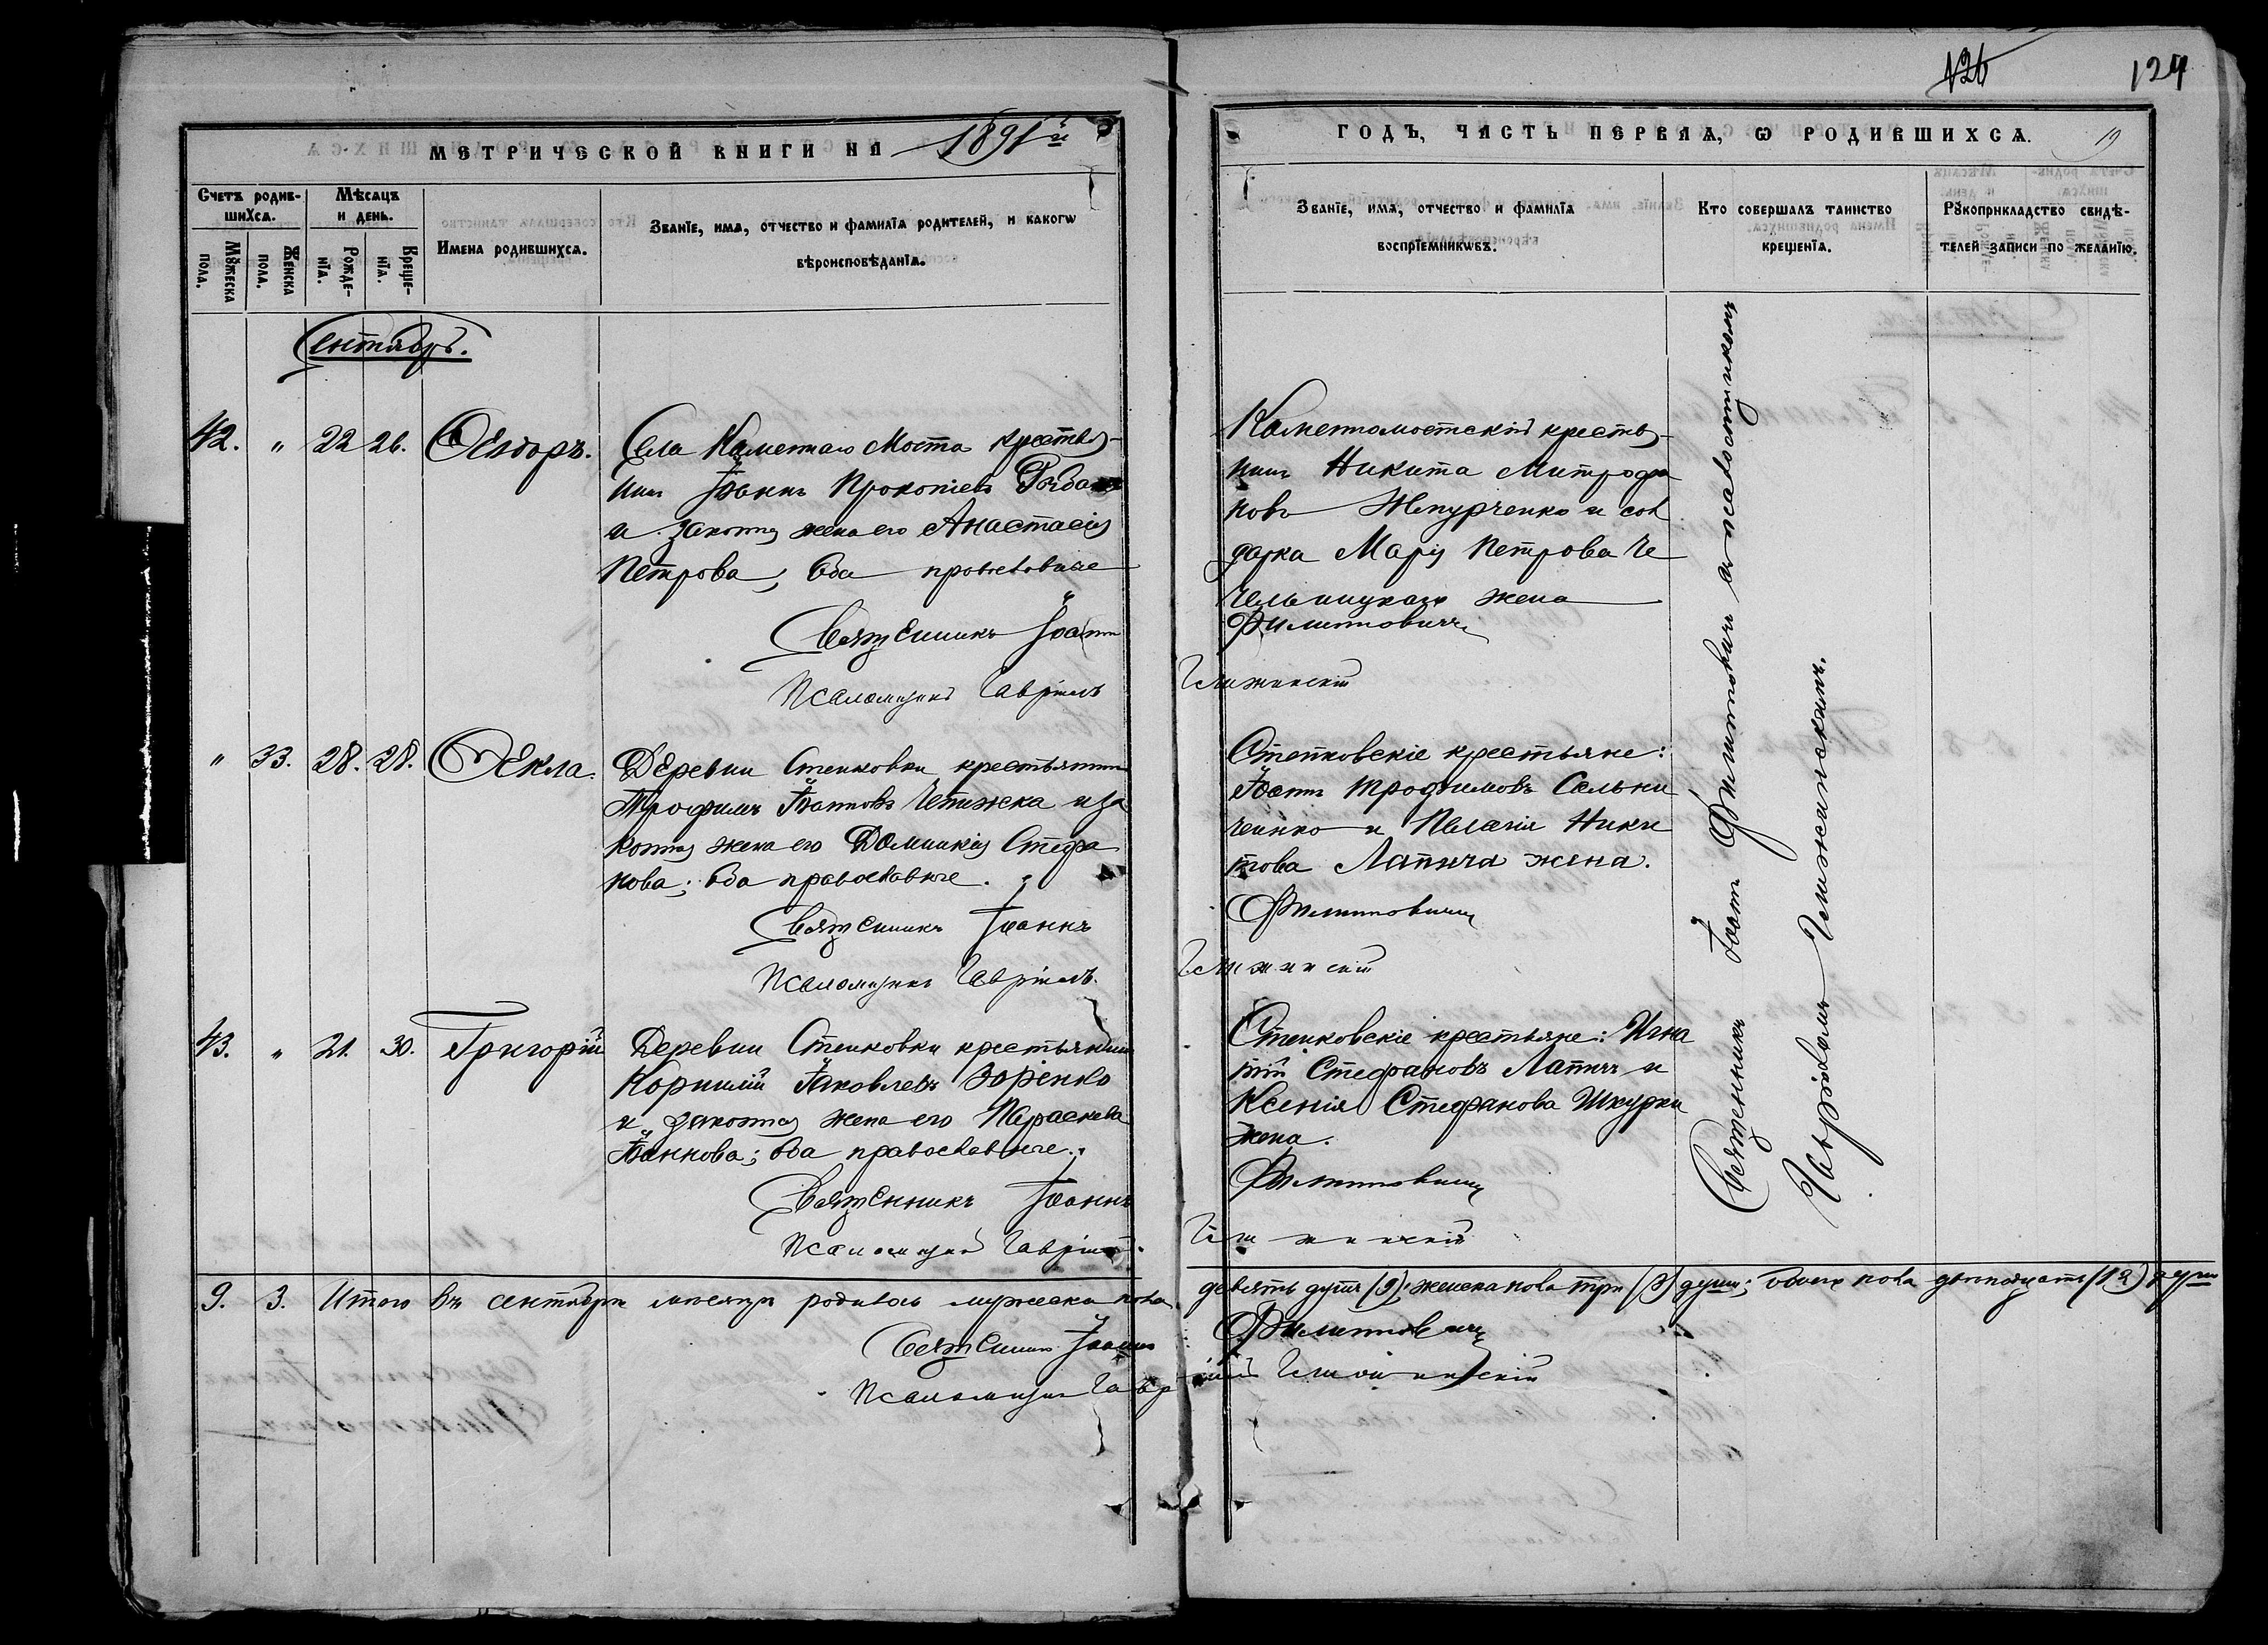 126 124
МЕТРИЧЕСКОЙ КНИГИ НА 1891й
ГОДЪ, ЧАСТЬ ПЕРВАЯ, Ѡ РОДИВШИХСѦ. 19
Счетъ родив-
шихсѧ.
Мѣсѧцъ
и день.
Мꙋжеска
пола.
Женска
пола.
Рожде-
нїѧ.
Креще-
нїѧ.
Имена родившихсѧ.
Званїе, имѧ, отчество и фамилїѧ родителей, и какогѡ
вѣроисповѣданїѧ.
Званїе, имѧ, отчество и фамилїѧ
воспрїемникѡвъ.
Кто совершалъ таинство
крещенїѧ.
Рꙋкоприкладство свидѣ-
телей записи по желанїю.
Сентябрь.
42. " 22 26. Ѳеодоръ.
Села Каменнаго Моста крестья-
нинъ Іоаннъ Прокопіевъ
и законная жена его Анастасія
Петрова; оба православные
Священникъ Іоаннъ
Псаломщикъ Гавріилъ
Каменномостскій крестья-
нинъ Никита Митрофа
новъ и сол
датка Марія Петрова Че
чельницкаго жена
Филипповичъ
" 33. 28. 28. Ѳекла.
Деревни Стенковки крестьянинъ
Трофимъ Іоанновъ и за
конная жена его Домникія Стефа
нова; оба православные.
Священникъ Іоаннъ
Псаломщикъ Гавріилъ.
Стенковскіе крестьяне:
Іоаннъ Трофимовъ
и Пелагія Ники
това Лапича жена.
Филипповичъ
43. " 21. 30. Григорій
Деревни Стенковки крестьянинъ
Корнилій Іаковлевъ Зоренко
и законная жена его Параскева
Іоаннова; оба православные.
Священникъ Іоаннъ
Псаломщикъ Гавріилъ.
Стенковскіе крестьяне: Игна
тій Стефановъ Лапичъ и
Ксенія Стефанова Шкурки
жена.
Филипповичъ
Священникъ Іоаннъ Филипповичъ съ псаломщикомъ
Гавріиломъ
9. 3. Итого въ сентябрѣ мѣсяцѣ родилось мужеска пола девять душъ (9); женска пола три (3) души; обоего пола двѣнадцать (12) душъ
Священникъ Іоаннъ Филипповичъ
Псаломщикъ Гавріилъ